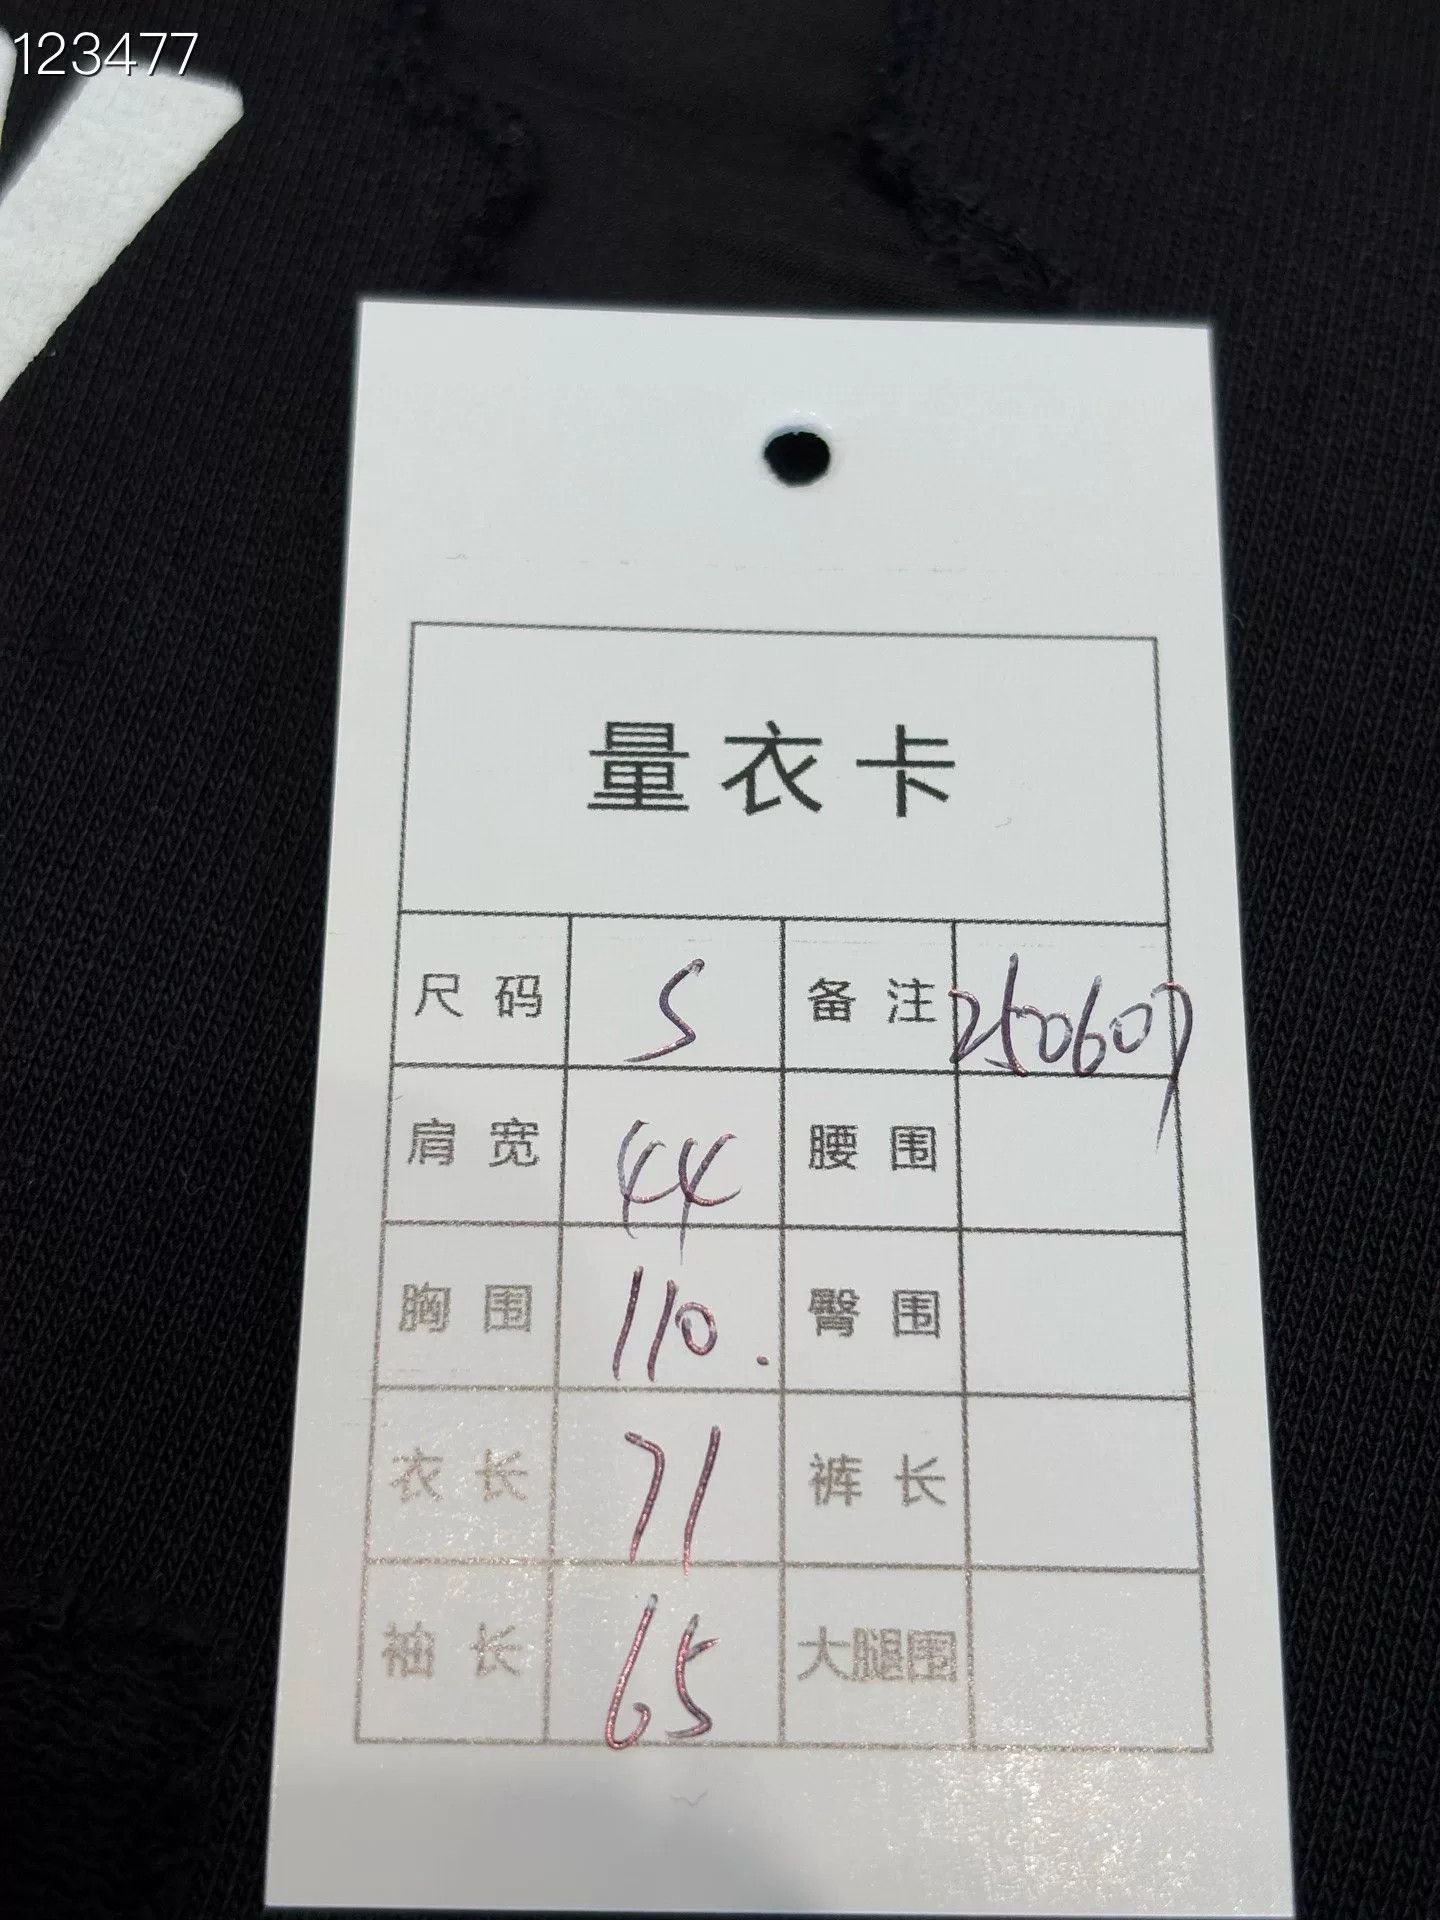 123477
量衣卡
尺码 S 备注 250607
肩宽 44 腰围
胸围 110. 臀围
衣长 71 裤长
袖长 65 大腿围